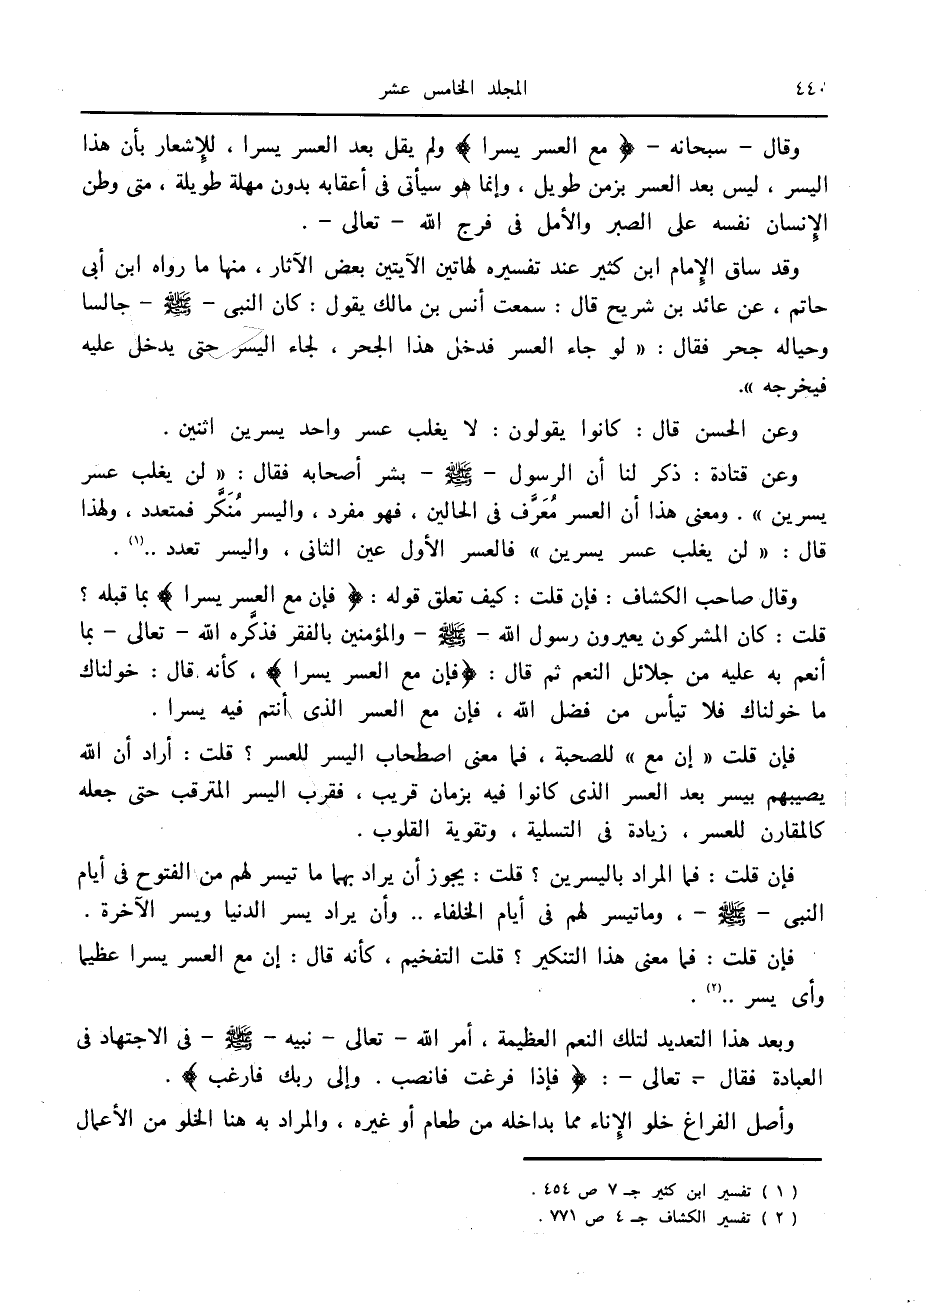 ٤٤٠ المجلد الخامس عشر
وقال – سبحانه – ﴿ مع العسر يسرا ﴾ ولم يقل بعد العسر يسرا ، للإِشعار بأن هذا
اليسر ، ليس بعد العسر بزمن طويل ، وإنما هو سيأتى فى أعقابه بدون مهلة طويلة ، متى وطن
الإِنسان نفسه على الصبر والأمل فى فرج الله – تعالى – .
وقد ساق الإِمام ابن كثير عند تفسيره لهاتين الآيتين بعض الآثار ، منها ما رواه ابن أبى
حاتم ، عن عائد بن شريح قال : سمعت أنس بن مالك يقول : كان النبى – ﷺ – جالسا
وحياله جحر فقال : « لو جاء العسر فدخل هذا الجحر ، لجاء اليسر حتى يدخل عليه
فيخرجه ».
وعن الحسن قال : كانوا يقولون : لا يغلب عسر واحد يسرين اثنين .
وعن قتادة : ذكر لنا أن الرسول – ﷺ – بشر أصحابه فقال : « لن يغلب عسر
يسرين » . ومعنى هذا أن العسر مُعَرَّف فى الحالين ، فهو مفرد ، واليسر مُنَكَّر فمتعدد ، ولهذا
قال : « لن يغلب عسر يسرين » فالعسر الأول عين الثانى ، واليسر تعدد ..(١) .
وقال صاحب الكشاف : فإن قلت : كيف تعلق قوله : ﴿ فإن مع العسر يسرا ﴾ بما قبله ؟
قلت : كان المشركون يعيرون رسول الله – ﷺ – والمؤمنين بالفقر فذكَّره الله – تعالى – بما
أنعم به عليه من جلائل النعم ثم قال : ﴿فإن مع العسر يسرا ﴾ ، كأنه قال : خولناك
ما خولناك فلا تيأس من فضل الله ، فإن مع العسر الذى أنتم فيه يسرا .
فإن قلت « إن مع » للصحبة ، فما معنى اصطحاب اليسر للعسر ؟ قلت : أراد أن الله
يصيبهم بيسر بعد العسر الذى كانوا فيه بزمان قريب ، فقرب اليسر المترقب حتى جعله
كالمقارن للعسر ، زيادة فى التسلية ، وتقوية القلوب .
فإن قلت : فما المراد باليسرين ؟ قلت : يجوز أن يراد بهما ما تيسر لهم من الفتوح فى أيام
النبى – ﷺ – ، وماتيسر لهم فى أيام الخلفاء .. وأن يراد يسر الدنيا ويسر الآخرة .
فإن قلت : فما معنى هذا التنكير ؟ قلت التفخيم ، كأنه قال : إن مع العسر يسرا عظيما
وأى يسر ..(٢) .
وبعد هذا التعديد لتلك النعم العظيمة ، أمر الله – تعالى – نبيه – ﷺ – فى الاجتهاد فى
العبادة فقال – تعالى – : ﴿ فإذا فرغت فانصب . وإلى ربك فارغب ﴾ .
وأصل الفراغ خلو الإِناء مما بداخله من طعام أو غيره ، والمراد به هنا الخلو من الأعمال
( ١ ) تفسير ابن كثير جـ ٧ ص ٤٥٤ .
( ٢ ) تفسير الكشاف جـ ٤ ص ٧٧١ .